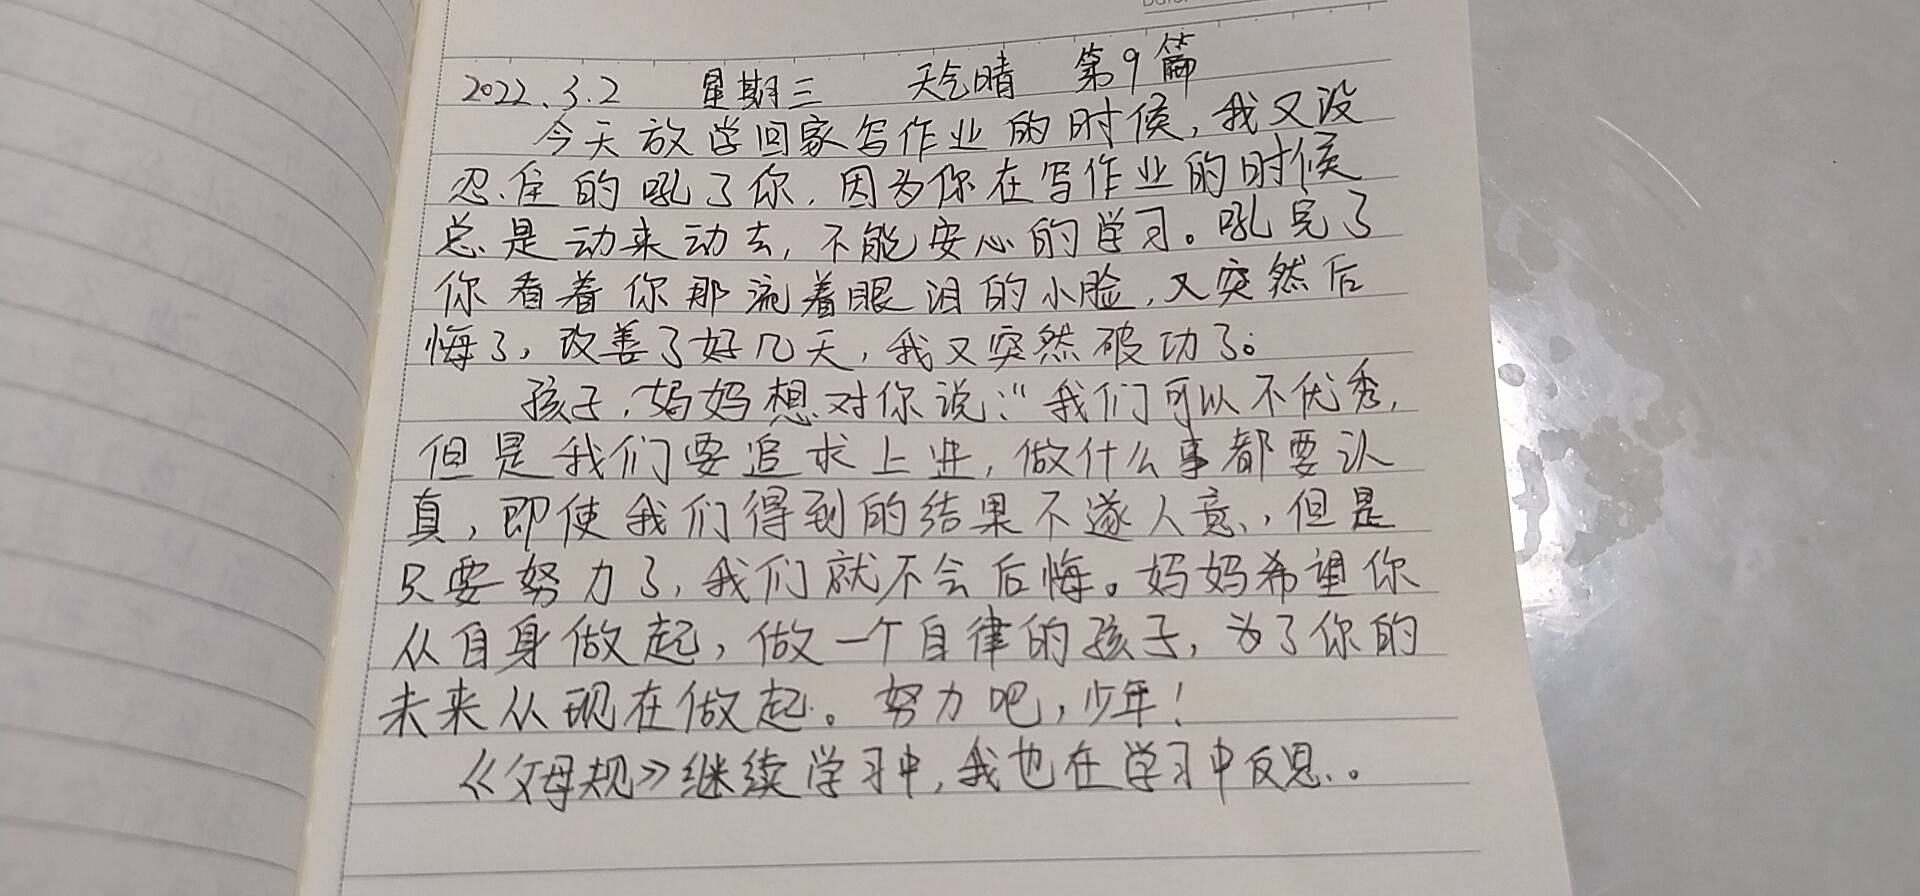 2022.3.2 星期三 天气晴 第9篇
今天放学回家写作业的时候,我又没
忍住的吼了你,因为你在写作业的时候
总是动来动去,不能安心的学习。吼完了
你看着你那流着眼泪的小脸,又突然后
悔了,改善了好几天,我又突然破功了。
孩子,妈妈想对你说:“我们可以不优秀,
但是我们要追求上进,做什么事都要认
真,即使我们得到的结果不遂人意,但是
只要努力了,我们就不会后悔。妈妈希望你
从自身做起,做一个自律的孩子,为了你的
未来从现在做起。努力吧,少年!
《父母规》继续学习中,我也在学习中反思。